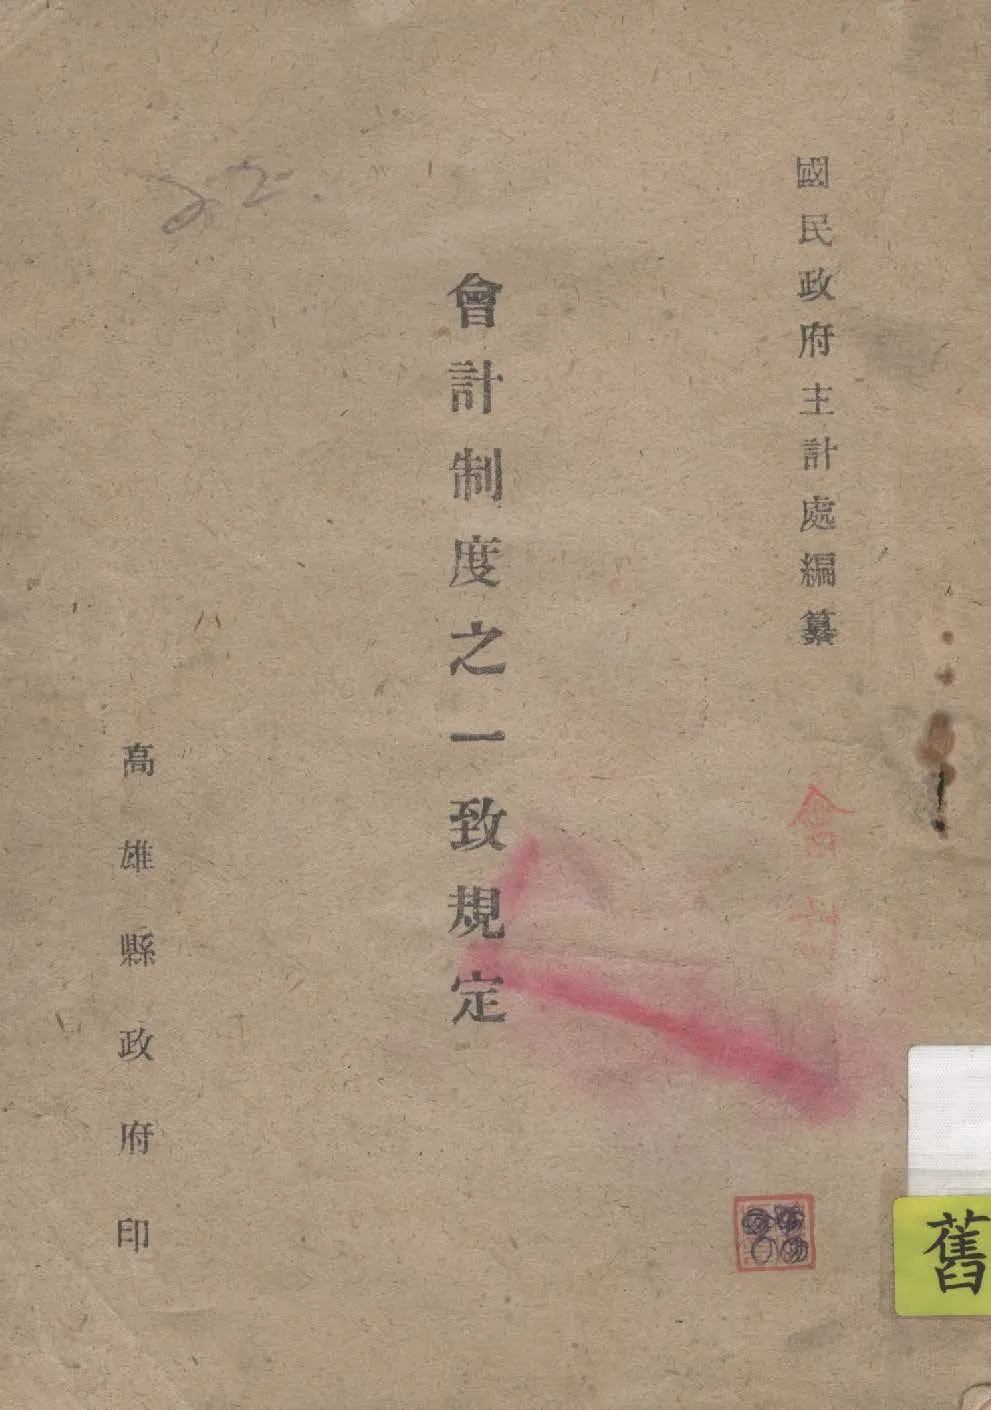 國民政府主計處編纂
會計制度之一致規定
高雄縣政府印
22.
舊